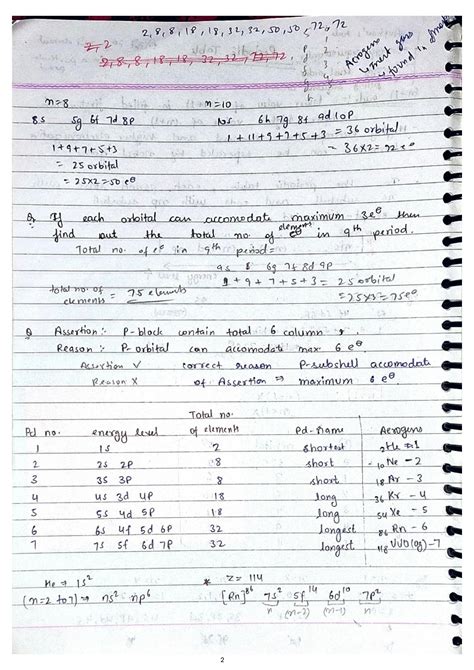 2, 8, 8, 18, 18, 32, 32, 50, 50, 72, 72
Z, 2
2, 8, 8, 18, 18, 32, 32, 72, 72
Aerogens
→ Inert gas
→ found in
n=8 n=10
8s 5g 6f 7d 8p 10s 6h 7g 8f 9d 10p
1+9+7+5+3 1+11+9+7+5+3 = 36 orbital
= 25 orbital = 36×2 = 72 e⊖
= 25×2 = 50 e⊖
Q If each orbital can accomodate maximum 3e⊖ then
find out the total no. of elements in 9th period.
Total no. of e⊖ in 9th period =
9s 6g 7f 8d 9p
1+9+7+5+3 = 25 orbital
= 25×3 = 75e⊖
total no. of
elements = 75 elements
Q Assertion :- P-block contain total 6 column
Reason :- P-orbital can accomodate max 6 e⊖
Assertion ✓ correct reason P-subshell accomodate
Reason X of Assertion ⇒ maximum 6 e⊖
Pd no. energy level Total no. of elements Pd-Name Aerogens
1 1s 2 shortest 2He - 1
2 2s 2p 8 short 10Ne - 2
3 3s 3p 8 short 18Ar - 3
4 4s 3d 4p 18 long 36Kr - 4
5 5s 4d 5p 18 long 54Xe - 5
6 6s 4f 5d 6p 32 longest 86Rn - 6
7 7s 5f 6d 7p 32 longest 118UUO(og) - 7
He ⇒ 1s² * Z = 114
(n=2 to 7) ⇒ ns² np⁶ [Rn]⁸⁶ 7s² 5f¹⁴ 6d¹⁰ 7p²
n (n-2) (n-1) n
2